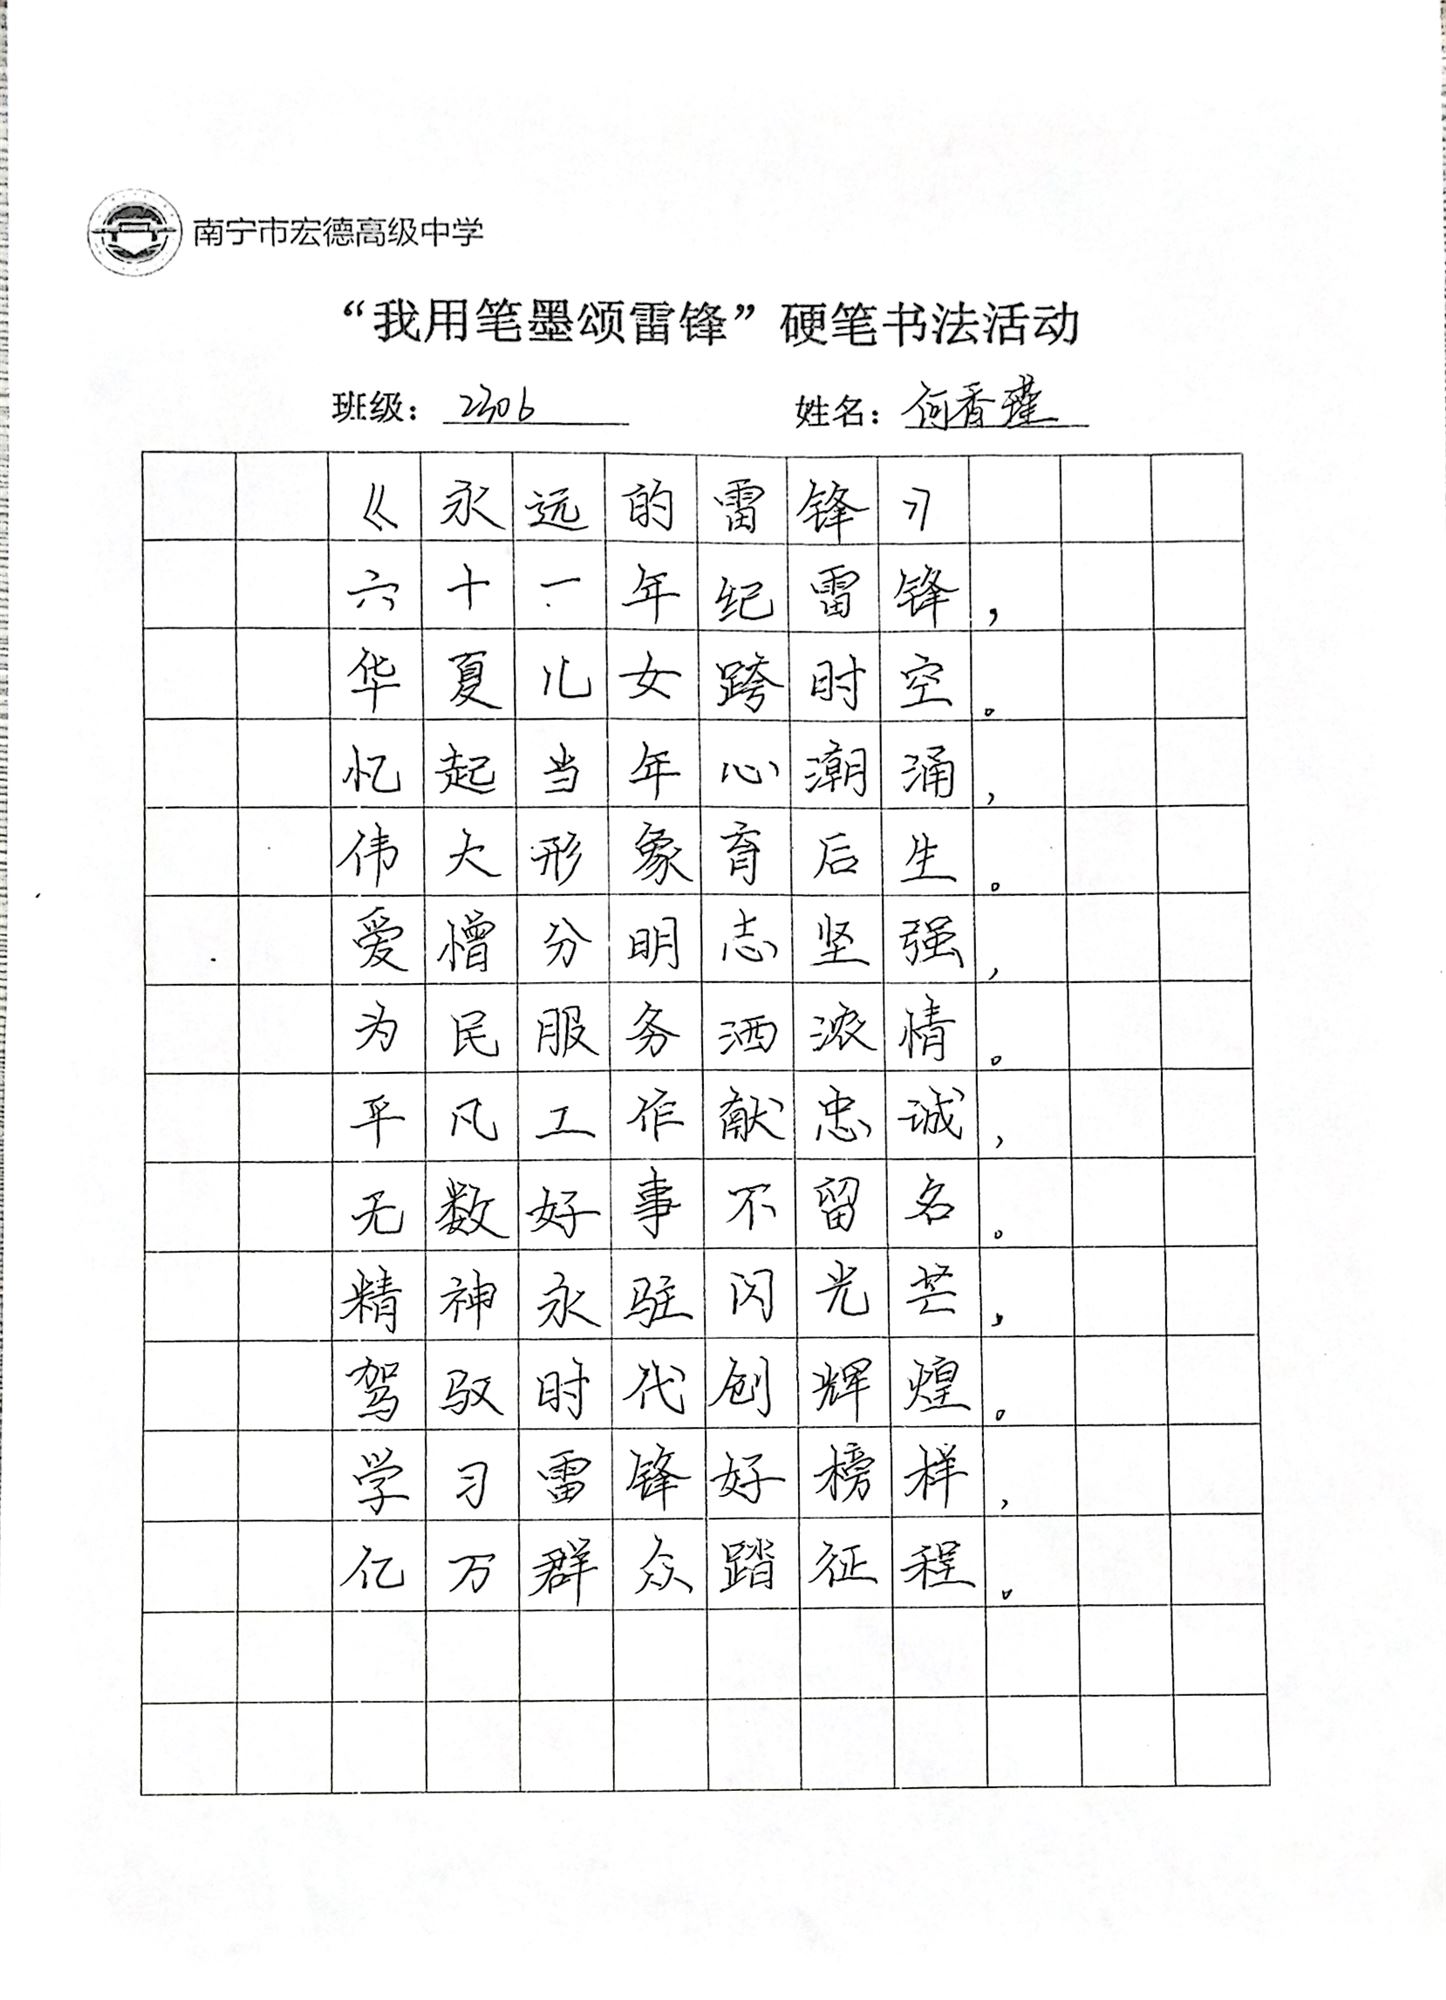 南宁市宏德高级中学
“我用笔墨颂雷锋”硬笔书法活动
班级：2306 姓名：何香瑾
《永远的雷锋》
六十一年纪雷锋，
华夏儿女跨时空。
忆起当年心潮涌，
伟大形象育后生。
爱憎分明志坚强，
为民服务洒浓情。
平凡工作献忠诚，
无数好事不留名。
精神永驻闪光芒，
驾驭时代创辉煌。
学习雷锋好榜样，
亿万群众踏征程。